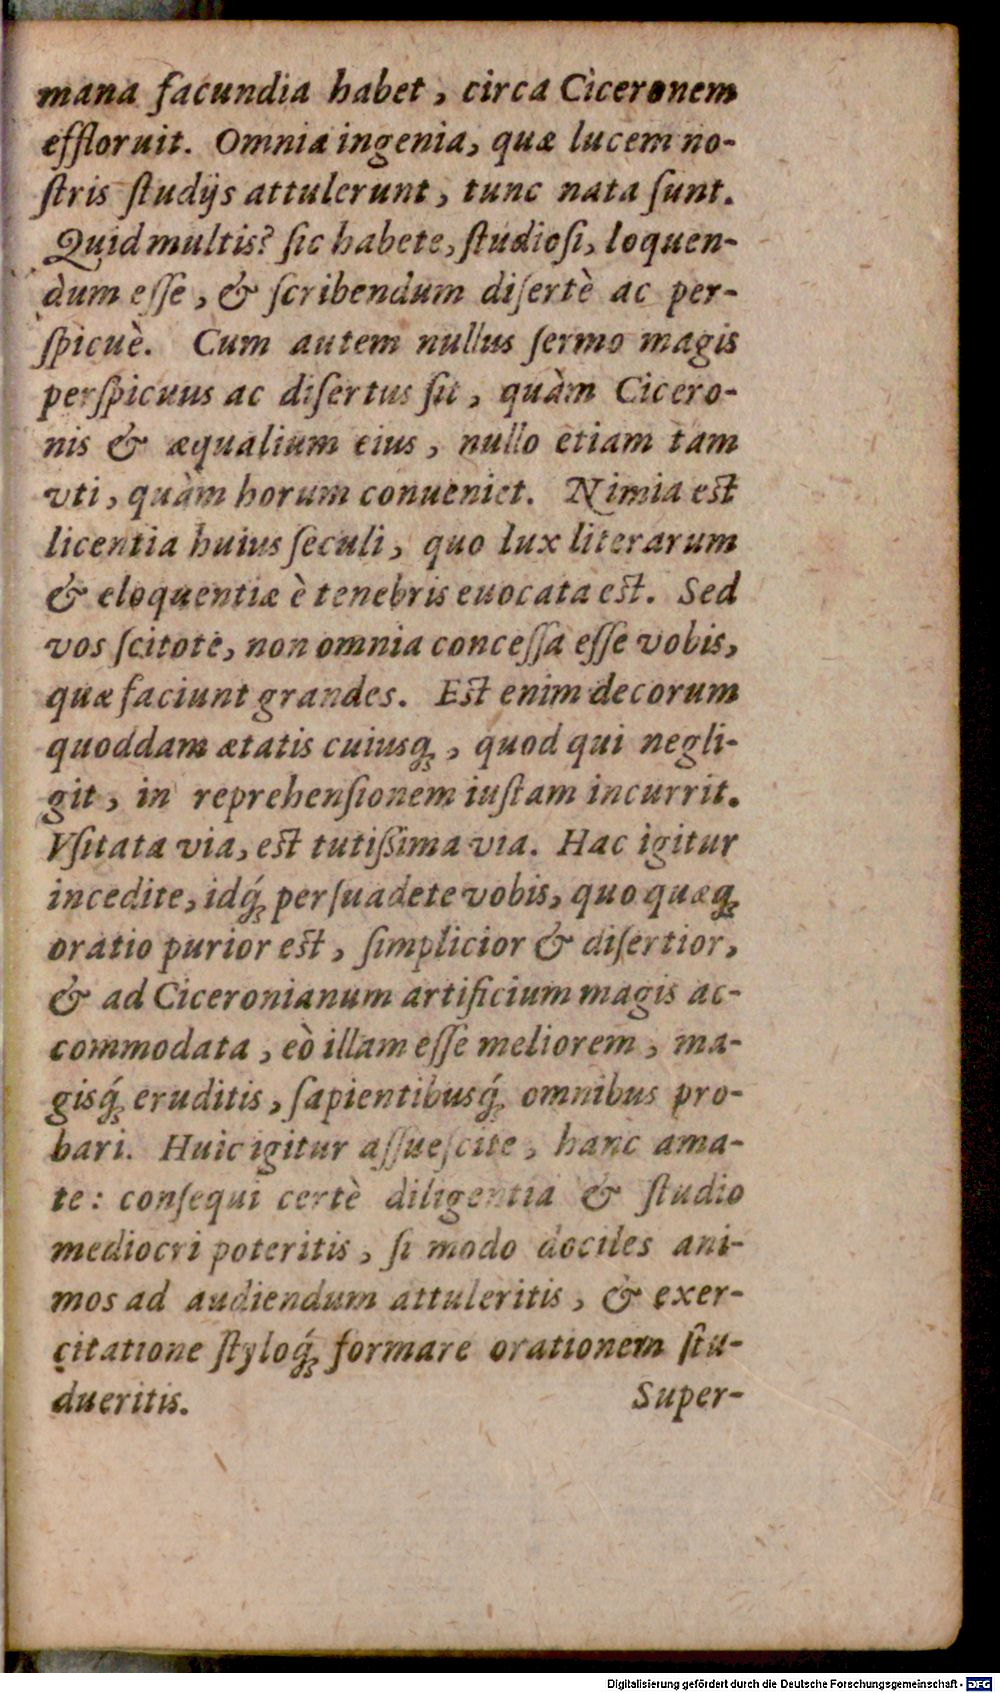 mana facundia habet, circa Ciceronem
effloruit. Omnia ingenia, quæ lucem no-
ſtris ſtudijs attulerunt, tunc nata ſunt.
Quid multis? ſic habete, ſtudioſi, loquen-
dum eſſe, & ſcribendum diſertè ac per-
ſpicuè. Cum autem nullus ſermo magis
perſpicuus ac diſertus ſit, quàm Cicero-
nis & æqualium eius, nullo etiam tam
vti, quàm horum conueniet. Nimia eſt
licentia huius ſeculi, quo lux literarum
& eloquentiæ è tenebris euocata eſt. Sed
vos ſcitote, non omnia conceſſa eſſe vobis,
quæ faciunt grandes. Eſt enim decorum
quoddam ætatis cuiusq́;, quod qui negli-
git, in reprehenſionem iuſtam incurrit.
Vſitata via, eſt tutiſsima via. Hac igitur
incedite, idq́; perſuadete vobis, quo quæq;
oratio purior eſt, ſimplicior & diſertior,
& ad Ciceronianum artificium magis ac-
commodata, eò illam eſſe meliorem, ma-
gisq́; eruditis, ſapientibusq́; omnibus pro-
bari. Huic igitur aſſueſcite, hanc ama-
te: conſequi certè diligentia & ſtudio
mediocri poteritis, ſi modo dociles ani-
mos ad audiendum attuleritis, & exer-
citatione ſtyloq́; formare orationem ſtu-
dueritis. Super-
Digitalisierung gefördert durch die Deutsche Forschungsgemeinschaft - DFG